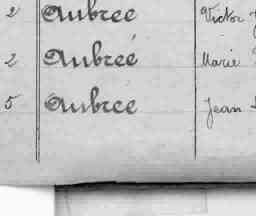 2 Aubreé Victor
2 Aubreé Marie
5 Aubreé Jean